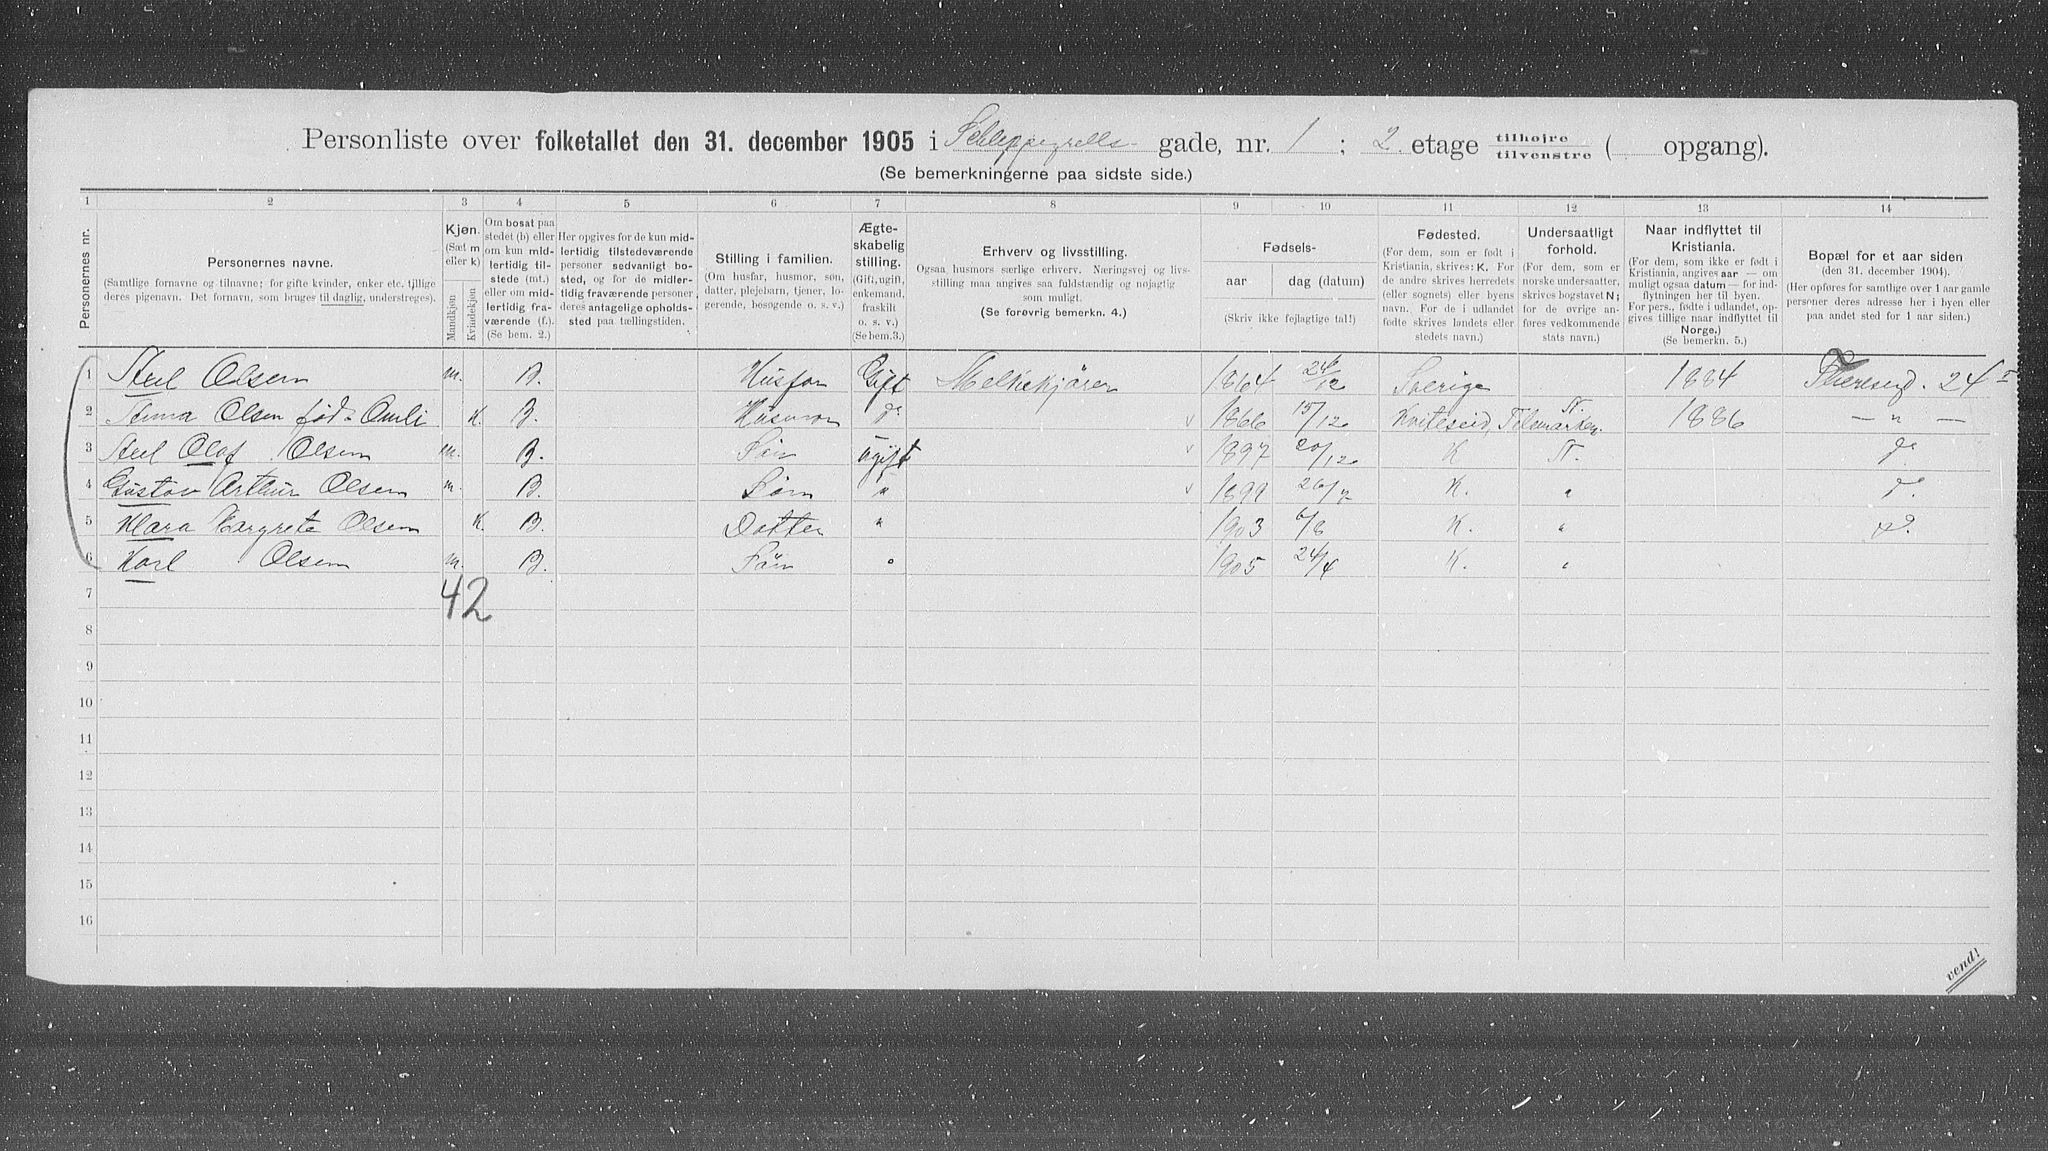 Personliste over folketallet den 31. december 1905 i Schleppegrells gade, nr. 1 ; 2 etage tilhøjre tilvenstre ( opgang).
(Se bemerkningerne paa sidste side.)
1 2 3 4 5 6 7 8 9 10 11 12 13 14
Personernes nr.
Personernes navne.
(Samtlige fornavne og tilnavne; for gifte kvinder, enker etc. tillige
deres pigenavn. Det fornavn, som bruges til daglig, understreges).
Kjøn.
(Sæt m
eller k)
Mandkjøn
Kvindekjøn
Om bosat paa
stedet (b) eller
om kun midlertidig
tilstede (mt.)
eller om midlertidig
fraværende (f.).
(Se bem. 2.)
Her opgives for de kun midlertidig
tilstedeværende
personer sedvanligt bosted,
og for de midlertidig
fraværende personer
deres antagelige opholdssted
paa tællingstiden.
Stilling i familien.
(Om husfar, husmor, søn,
datter, plejebarn, tjener, logerende,
besøgende o. s. v.)
Ægteskabelig
stilling.
(Gift, ugift,
enkemand,
fraskilt
o. s. v.)
(Se bem. 3.)
Erhverv og livsstilling.
Ogsaa husmors særlige erhverv. Næringsvej og livsstilling
maa angives saa fuldstændig og nøjagtig
som muligt.
(Se forøvrig bemerkn. 4.)
Fødsels-
aar dag (datum)
(Skriv ikke fejlagtige tal!)
Fødested.
(For dem, som er født i
Kristiania, skrives: K. For
de andre skrives herredets
(eller sognets) eller byens
navn. For de i udlandet
fødte skrives landets eller
stedets navn.)
Undersaatligt
forhold.
(For dem, som er
norske undersaatter,
skrives bogstavet N;
for de øvrige anføres
vedkommende
stats navn.)
Naar indflyttet til
Kristiania.
(For dem, som ikke er født i
Kristiania, angives aar — om
muligt ogsaa datum — for indflytningen
her til byen.
For pers., fødte i udlandet, opgives
tillige naar indflyttet til
Norge.)
(Se bemerkn. 5.)
Bopæl for et aar siden
(den 31. december 1904).
(Her opføres for samtlige over 1 aar gamle
personer deres adresse her i byen eller
paa andet sted for 1 aar siden.)
1 Axel Olsen m. B. Husfar Gift Melkekjörer 1864 24/12 Sverige 1884 24 I
2 Anna Olsen född Omli K. B. Husmor do v 1866 15/12 Kviteseid, Telemarken N. 1886 — " —
3 Axel Olaf Olsen m. B. Sön ugift v 1897 20/12 K N. do
4 Gustav Arthur Olsen m. B. Sön " v 1899 K. " do
5 Klara Margrete Olsen K. B. Datter " 1903 6/8 K. " do
6 Karl Olsen m. B. Sön " 1905 24/4 K. "
42
7
8
9
10
11
12
13
14
15
16
vend!